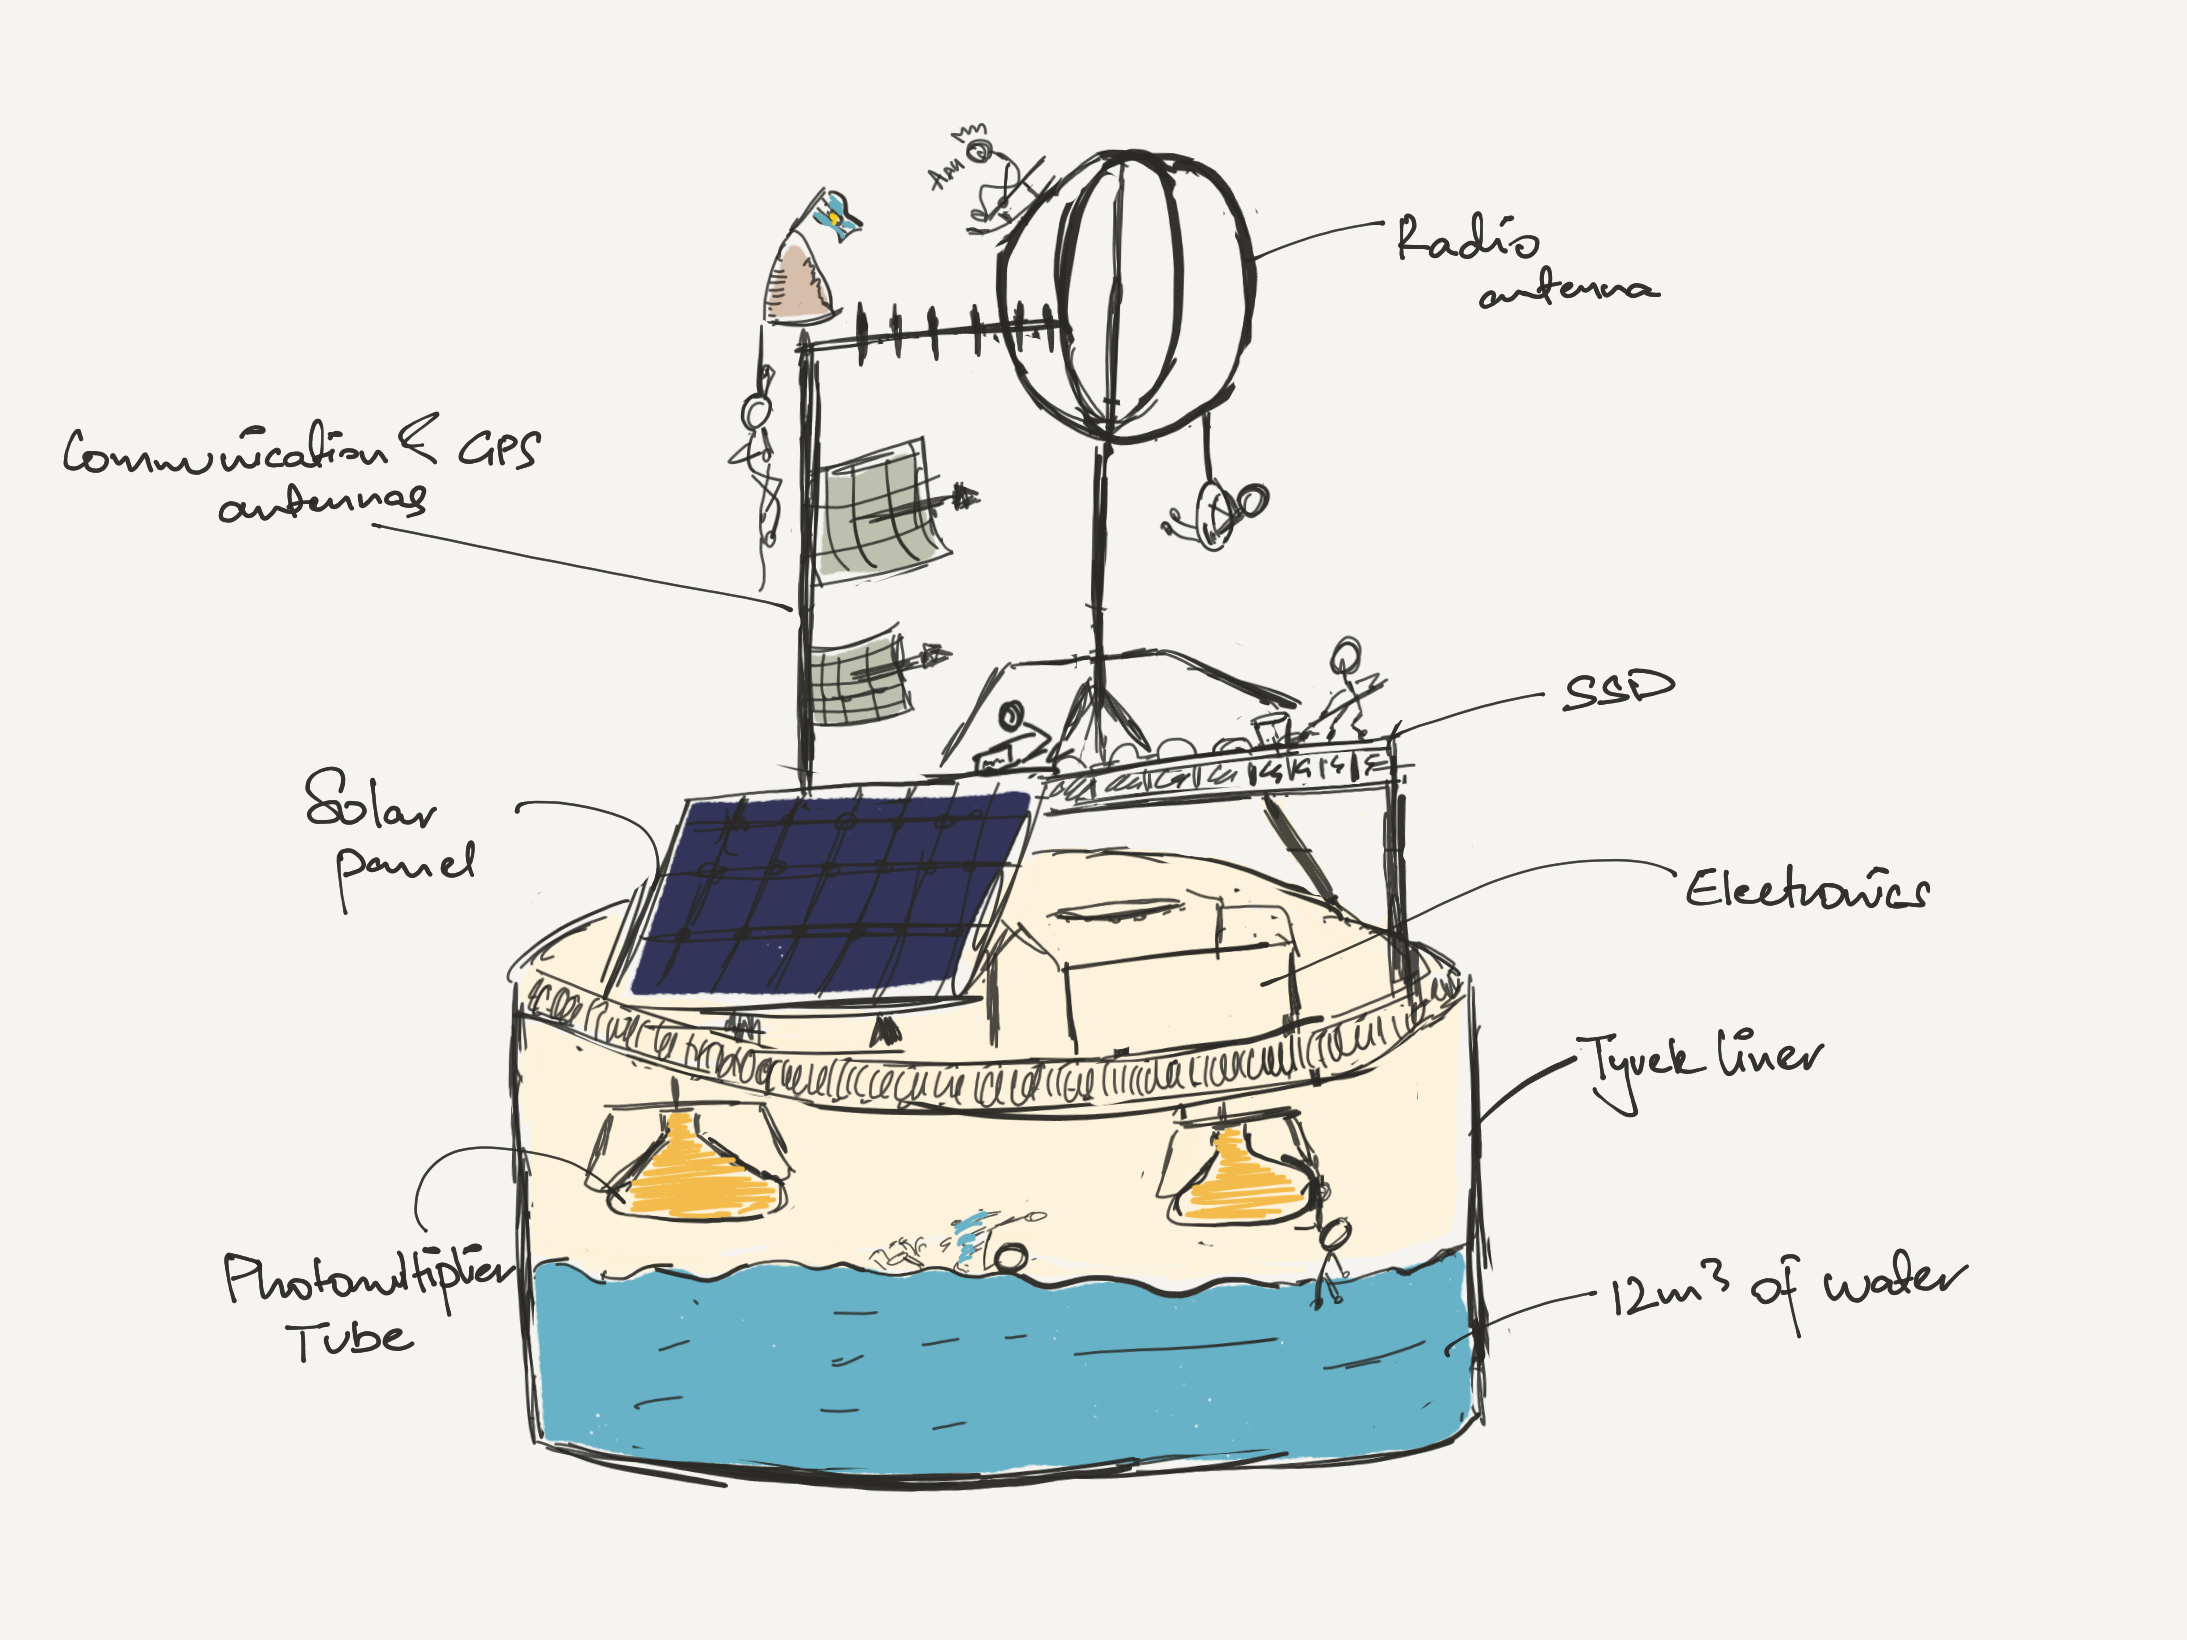 AAA!
Radio
antenna
Communication & GPS
antennas
SSD
Solar
panel
Electronics
Tyvek liner
Photomultiplier
Tube
12m³ of water